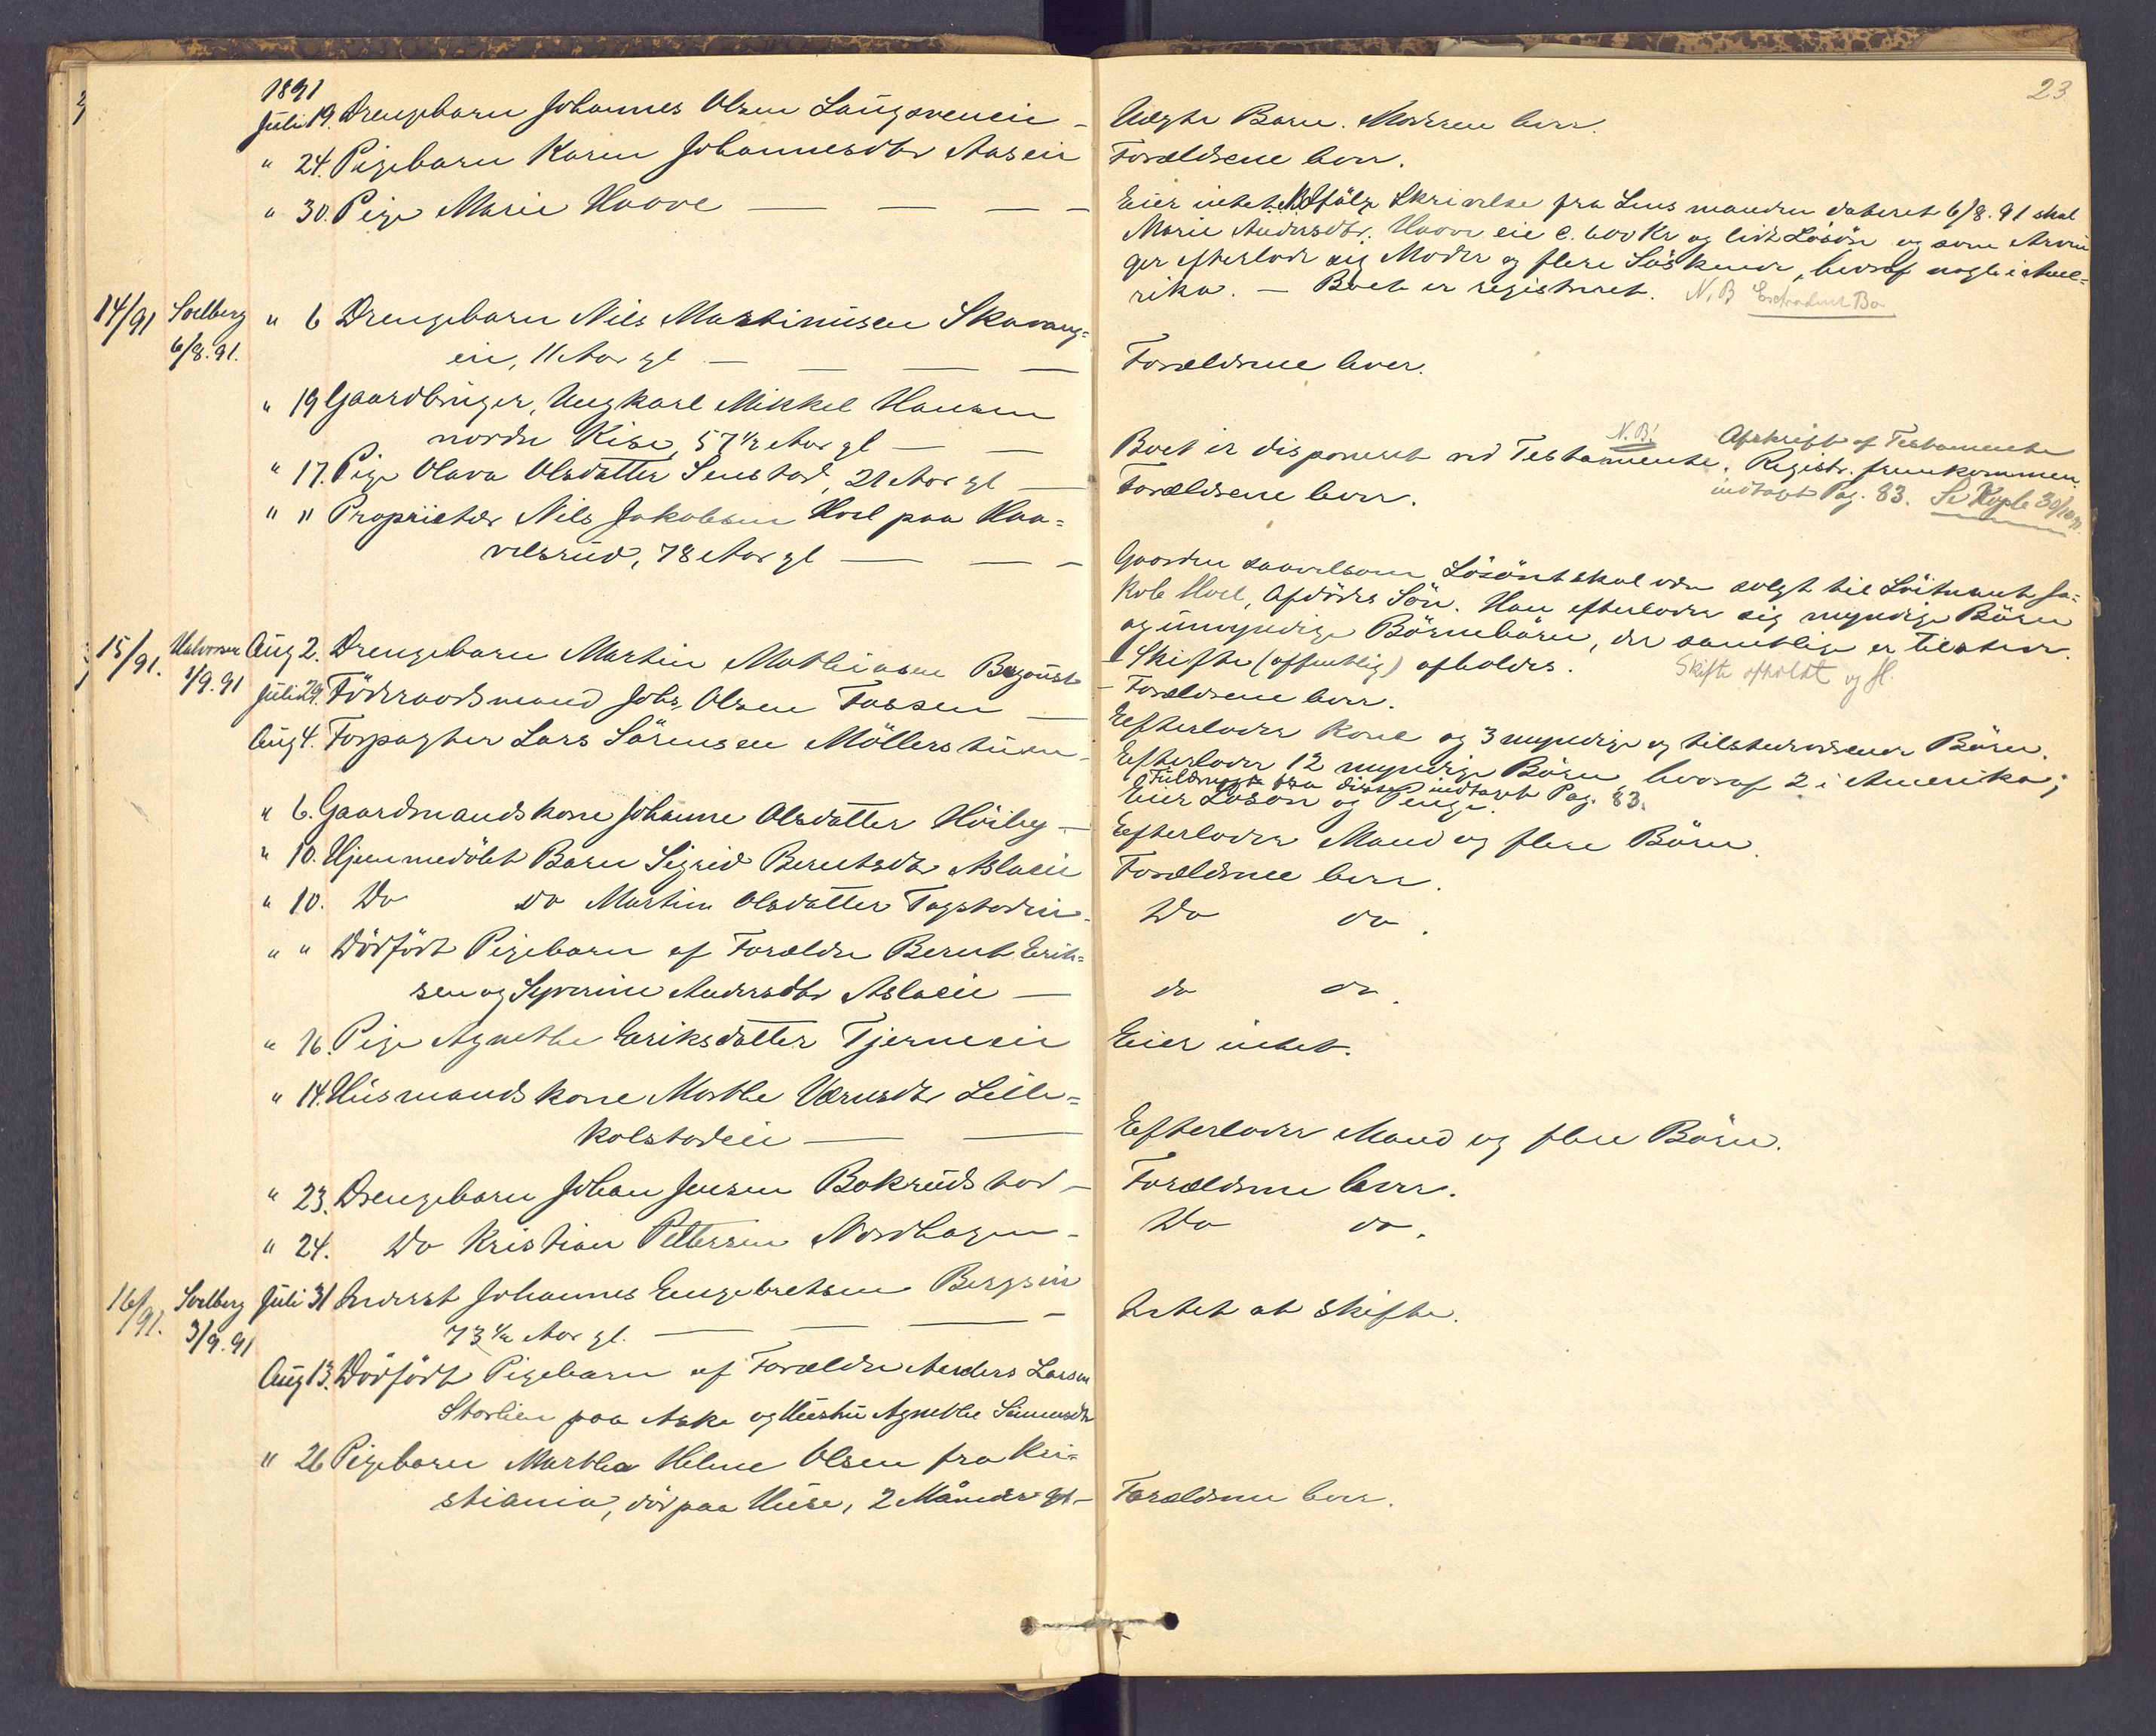 23
1891
Juli 19. Drengebarn Johannes Olsen Langsveneie — Uægte Barn. Moderen lever.
" 24. Pigebarn Karen Johannesdtr Aaseie Forældrene lever.
" 30. Pige Marie Hoove — — — — Eier intet. NB Ifølge Skrivelse fra Lensmanden dateret 6/8. 91 skal
Marie Andersdtr. Hoove eie c. 600 Kr og lidt Løsøre og som Arvin
ger efterlod sig Moder og flere Søskende, hvoraf nogle i Ame-
rika. — Boet er registreret. N.B Extradert Bo
14/91 Soelberg 6/8.91. " 6 Drengebarn Nils Martinusen Skavang-
eie, 11 Aar gl — — — — Forældrene lever.
" 19 Gaardbruger, Ungkarl Mikkel Hansen
nordre Kise, 57 1/2 Aar gl — — Boet er disponeret ved Testamente. N.B! Afskrift af Testamente
Registr. fremkommen.
indtaget Pag. 83. Se Kople 30/10 91.
" 17. Pige Olava Olsdatter Senstad, 21 Aar gl — Forældrene lever.
" " Proprietær Nils Jakobsen Hoel paa Haa-
velsrud, 78 Aar gl — — — Gaarden saavelsom Løsøret skal være solgt til Løitnant Ja-
kob Hoel, Afdødes Søn. Han efterlader sig myndige Børn
og umyndige Børnebørn, der samtlige er tilstede.
Skifte (offentlig) afholdes. Skifte afholdt og sl.
15/91. Halvorsen 1/9.91 Aug 2. Drengebarn Martin Mathiasen — Forældrene lever.
Juli 29. Føderaadsmand Johs. Olsen Fossen — Efterlader Kone og 3 myndige og tilstedeværende Børn.
Aug 4. Forpagter Lars Sørensen Möllerstuen — Efterlader 12 myndige Børn, hvoraf 2 i Amerika;
Fuldmagt fra disse indtaget Pag. 83.
Eier Løsøre og Penge.
" 6. Gaardmandskone Johanne Olsdatter Høiby — Efterlader Mand og flere Børn.
" 10. Hjemmedöbt Barn Sigrid Berntsdtr Aslaeie Forældrene lever.
" 10. Do Do Martine Olsdatter Togstadeie — Do do.
" " Dødfødt Pigebarn af Forældre Bernt Erik-
sen og Syverine Andersdtr Aslaeie — do do.
" 16. Pige Agnethe Eriksdatter Tjerneeie Eier intet.
" 14. Husmandskone Marthe Værnsdtr Lille-
kolstadeie — — Efterlader Mand og flere Børn.
" 23. Drengebarn Johan Jensen Bokrudstad — Forældrene lever.
" 24. Do Kristian Pettersen Nordhagen — Do do.
16/91. Soelberg 3/9.91 Juli 31 Inderst Johannes Engebretsen Bergseie
73 1/2 Aar gl. — — — — Intet at skifte.
Aug 13. Dødfødt Pigebarn af Forældre Anders Larsen
Storlien paa Aske og Hustru Agnethe
" 26 Pigebarn Marthea Helene Olsen fra Kri-
stiania, død paa Huse, 2 Måneder gl — Forældrene lever.